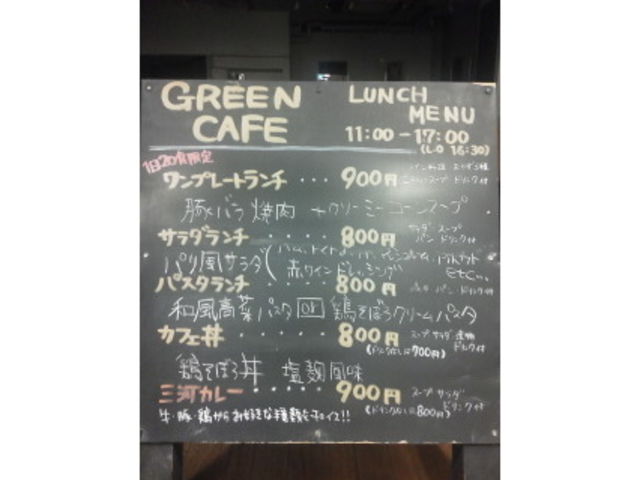 GREEN CAFE
LUNCH MENU
11:00-17:00
(L.O 16:30)
1日20食限定
ワンプレートランチ・・・900円
スープ ドリンク付
豚バラ焼肉 + クリーミーコーンスープ
サラダランチ・・・・800円 サラダ スープ
パン ドリンク付
パリ風サラダ(ハム、トマト
赤ワインドレッシング etc...
パスタランチ・・・・800円 パン・ドリンク付
和風高菜パスタ or 鶏そぼろクリームパスタ
カフェ丼・・・・・800円 スープ サラダ 漬物
(ドリンクなしは700円) ドリンク付
鶏そぼろ丼 塩麹風味
三河カレー・・・・・900円 スープ サラダ
(ドリンクなしは800円) ドリンク付
牛・豚・鶏からお好きな種類をチョイス!!